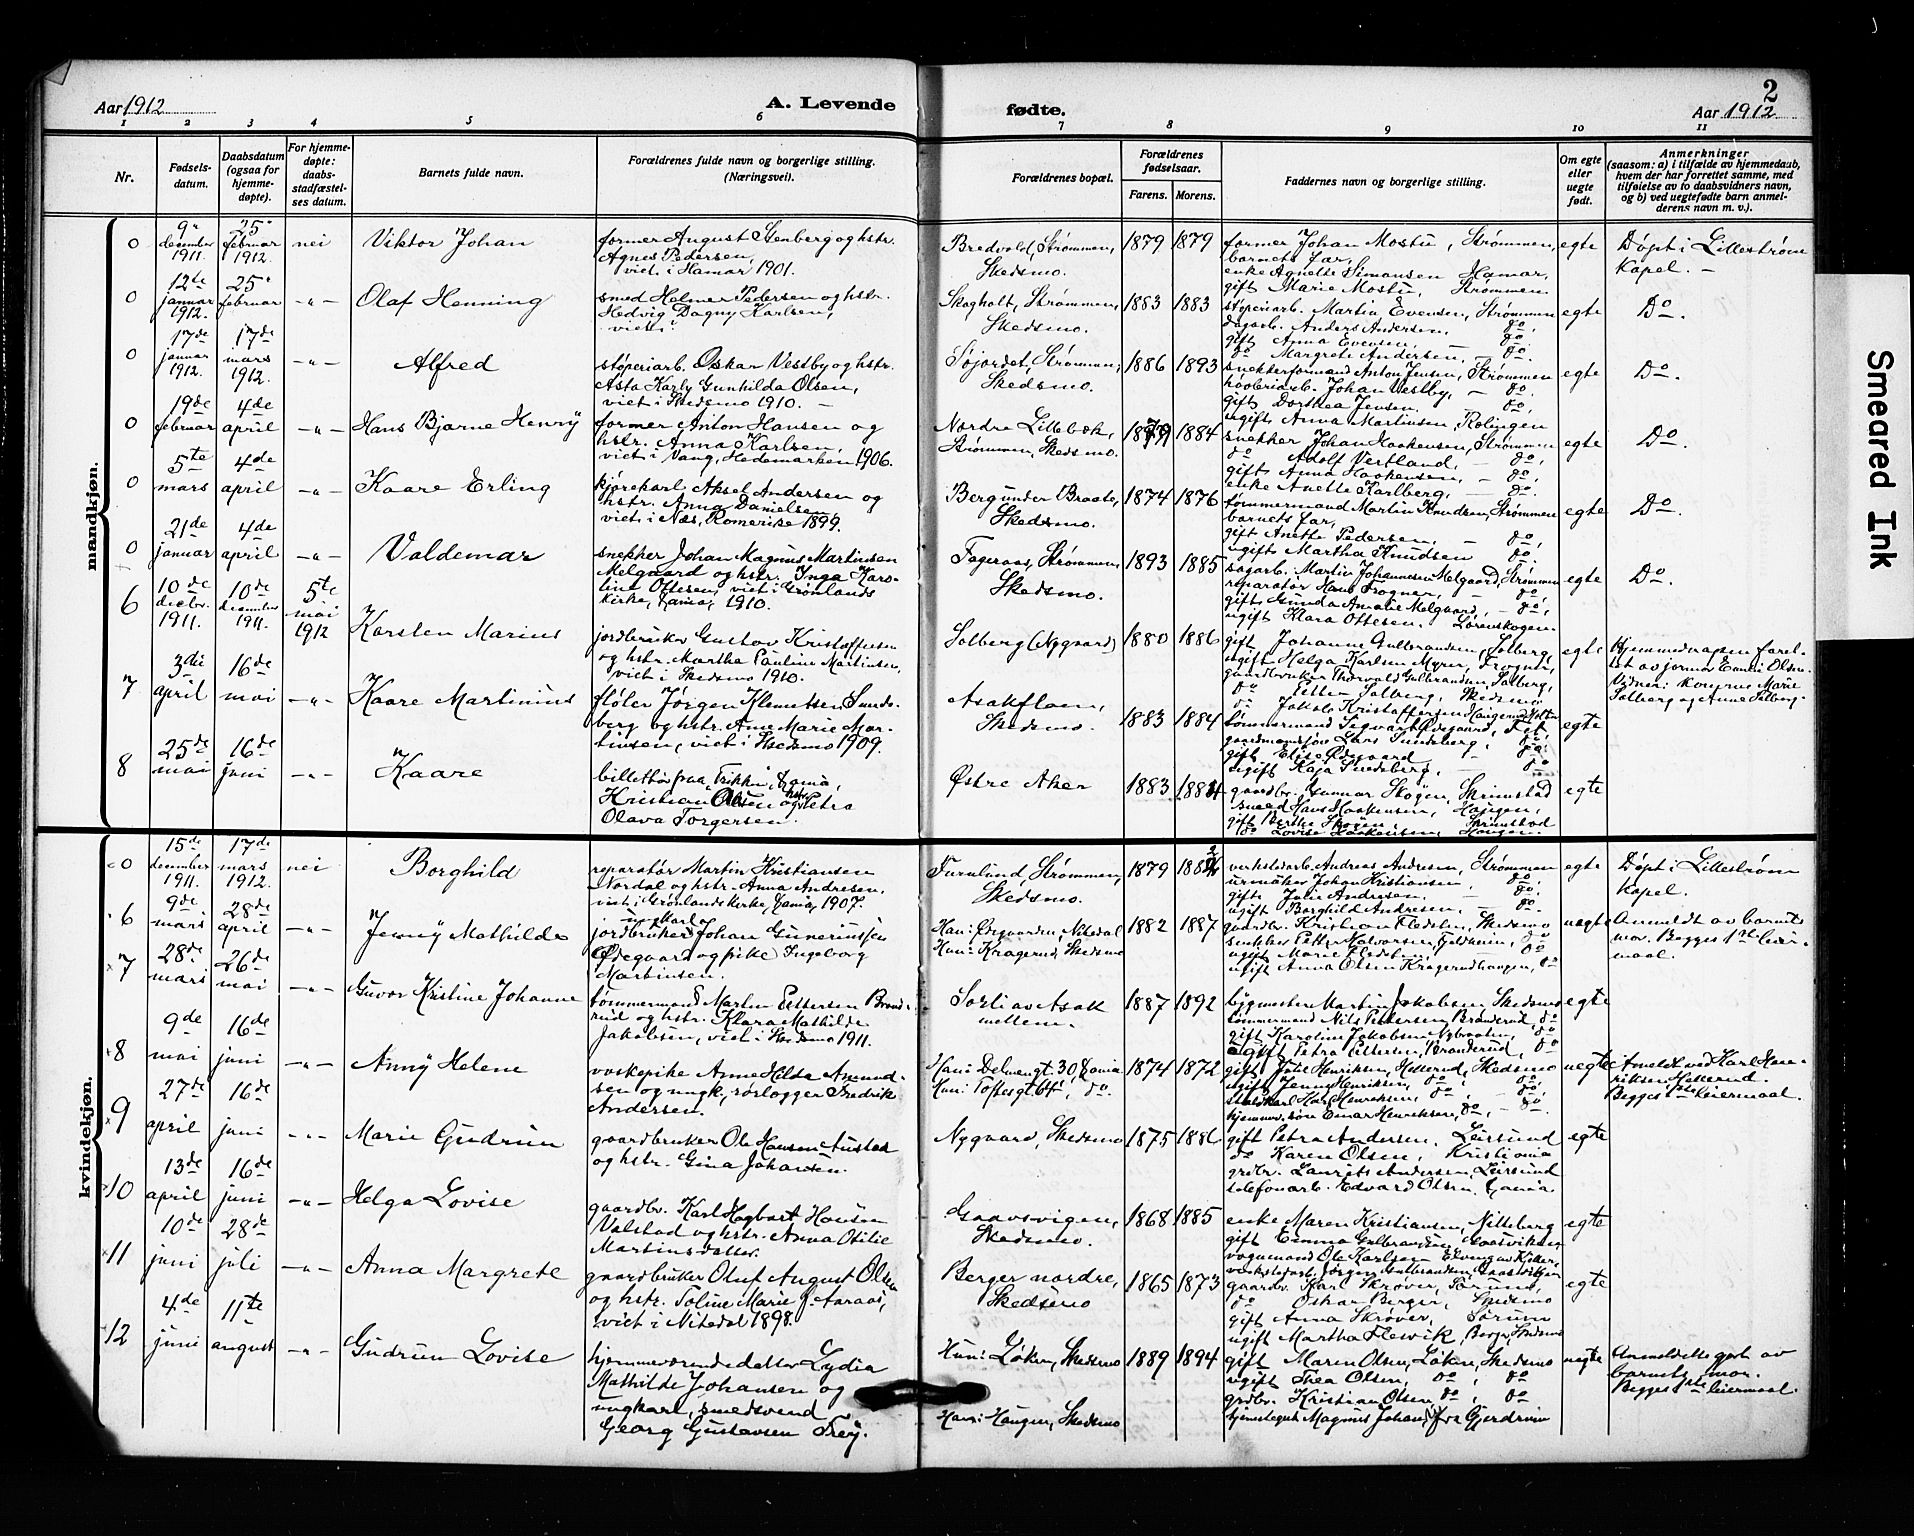 Aar 1912
A. Levende
fødte.
2
Aar 1912
1 2 3 4 5 6 7 8 9 10 11
Nr.
Fødsels-
datum.
Daabsdatum
(ogsaa for
hjemme-
døpte).
For hjemme-
døpte:
daabs-
stadfæstel-
ses datum.
Barnets fulde navn.
Forældrenes fulde navn og borgerlige stilling.
(Næringsvei).
Forældrenes bopæl.
Forældrenes
fødselsaar.
Farens. Morens.
Faddernes navn og borgerlige stilling.
Om egte
eller
uegte
født.
Anmerkninger
(saasom: a) i tilfælde av hjemmedaab,
hvem der har forrettet samme, med
tilføielse av to daabsvidners navn,
og b) ved uegtefødte barn anmel-
derens navn m. v.).
mandkjøn.
0
9de
december
1911.
25de
februar
1912.
nei
Viktor Johan
former August Stenberg og hstr.
Agnes Pedersen,
viet i Hamar 1901.
Bredvold, Strømmen,
Skedsmo.
1879 1879
former Johan Mostu, Strømmen,
barnets far,
enke Agnette Simonsen Hamar,
gift Marie Mostu, Strømmen
egte
Døpt i Lillestrøm
Kapel. —
0
12te
januar
1912.
25de
februar
-"-
Olaf Henning
smed Helmer Pedersen og hstr.
Hedvig Dagny Karlsen,
viet i
Skogholt, Strømmen,
Skedsmo.
1883 1883
støperiarb. Martin Evensen, Strømmen
dagarb. Anders Andersen, do.
gift Anna Evensen, do.
do Margrete Andersen, — do.
egte
Do.
0
17de
januar
1912.
17de
mars
1912.
-"-
Alfred
støperiarb. Oskar Vestby og hstr.
Asta Karly Gunhilda Olsen,
viet i Skedsmo 1910. —
Søjordet, Strømmen,
Skedsmo.
1886 1893
snekkerformand Anton Jensen, Strømmen
høvleriarb. Johan Vestby, — do.
gift Dorthea Jensen. do.
ugift Anna Martinsen, Rælingen
egte
Do.
0
19de
februar
4de
april
-"-
Hans Bjarne Henry
former Anton Hansen og
hstr. Anna Karlsen,
viet i Vang, Hedemarken 1906.
Nordre Lillebæk,
Strømmen, Skedsmo.
1879 1884
snekker Johan Haakensen, Strømmen
do Adolf Vestland, — do.
gift Anna Haakensen, — do.
enke Anette Karlberg, — do.
egte
Do.
0
5te
mars
4de
april
-"-
Kaare Erling
kjørekarl Aksel Andersen og
hstr. Anna Danielsen,
viet i Næs, Romerike 1899.
Berg under Braate,
Skedsmo.
1874 1876
tømmermand Martin Knudsen, Strømmen
barnets far,
gift Anette Pedersen, — do.
ugift Martha Knudsen do.
egte
Do.
0
21de
januar
4de
april
-"-
Valdemar
snekker Johan Magnus Martinsen
Melgaard og hstr. Ynga Karo-
line Ottesen, viet i Grønlands
kirke, Xania, 1910.
Fageraas, Strømmen,
Skedsmo.
1893 1885
sagarb. Martin Johannesen Melgaard, Strømmen
reparatør Hans Trogner, — do.
gift Gunda Amalie Melgaard, — do.
ugift Klara Ottesen. Lørenskogen.
egte
Do.
6
10de
decbr.
1911.
10de
december
1911.
5te
mai
1912
Karsten Marius
jordbruker Gustav Kristoffersen
og hstr. Martha Pauline Martinsen,
viet i Skedsmo 1910.
Solberg (Nygaard)
1880 1886
gift Johanne Gulbrandsen, Solberg,
ugift Helga Karlsen Myrer, Frogner,
gaardbruker Thorvald Gulbrandsen, Solberg,
do Petter Solberg, Skedsmo
do Jakob Kristoffersen
egte
Hjemmedaapen foret-
tet av jormor Emmi Olsen.
Vidner: Konerne Marie
Solberg og Anne Solberg.
7
3die
april
16de
mai
-"-
Kaare Martinius
fløter Jørgen Klemetsen Sunds-
berg og hstr. Anne Marie Mar-
tinsen, viet i Skedsmo 1909.
Asakfloen,
Skedsmo.
1883 1884
tømmermand Sigvart Ødegaard, Fet,
gaardmandssøn Lars Sundsberg, do.
gift Elise Ødegaard do.
ugift Kaja Sundsberg, — do
egte
8
25de
mai
16de
juni
-"-
Kaare
billettør fraa Trikken, Xania,
Kristian Olsen og hstr. Petra
Olava Torgersen.
Østre Aker
1883 1884
gaardbr. Gunnar Skogen, Skrimstad
smed Hans Haakensen, Haugen,
gift Berthe Skogen, Skrimstad
do Lovise Haakensen, Haugen.
egte
kvindekjøn.
0
15de
december
1911.
17de
mars
1912.
nei
Borghild
reparatør Martin Kristiansen
Nordal og hstr. Anna Andresen.
viet i Grønlands Kirke, Xania, 1907.
Furulund Strømmen,
Skedsmo.
1879 1882
verkstedarb. Andreas Andresen, Strømmen
urmaker Johan Kristiansen, — do.
gift Julie Andresen, — do.
ugift Borghild Andresen, — do.
egte
Døpt i Lillestrøm
Kapel.
6
9de
mars
28de
april
-"-
Jenny Mathilde
ungkarl og
jordbruker Johan Gunerinssen
Ødegaard og pike Ingeborg
Martinsen.
Han: Ødegaarden, Nitedal
Hun: Kragerud, Skedsmo
1882 1887
gaardbr. Kristian Flodsten, Skedsmo
snekker Petter Halvorsen, Fjeldheim, do
ugift Marie Flodsten, do
ugift Anna Olsen Kragerudhaugen, do
uegte
Anmeldt av barnets
mor. Begges 1ste leier-
maal.
7
28de
mars
26de
mai
-"-
Guvor Kristine Johanne
tømmermand Martin Pettersen Brand-
rud og hstr. Klara Mathilde
Jakobsen, viet i Skedsmo 1911.
Sorli av Asak
mellem.
1887 1892
bygmester Martin Jakobsen, Skedsmo
tømmermand Nils Pettersen Branderud, do
gift Karoline Jakobsen, Nybraaten, do
ugift Petra Pettersen, Branderud, do
egte
8
9de
mai
16de
juni
-"-
Anny Helene
vaskepike Anne Hilda Amund-
sen og ungk. rørlegger Fredrik
Andersen.
Han: Delenengt. 30, Xania
Hun: Toftesgt. 64, do.
1874 1872
gift Julie Henriksen, Hellerud, Skedsmo
ugift Jenny Henriksen, do, do.
staldkarl Karl Henriksen, do, do.
hjemmev. søn Einar Henriksen, do, — do.
uegte
Anmeldt ved Karl Hen-
riksen Hellerud.
Begges 1ste leiermaal.
9
27de
april
16de
juni
-"-
Marie Gudrun
gaardbruker Ole Hansen Austad
og hstr. Gina Johansen.
Nygaard, Skedsmo
1875 1886
gift Petra Andersen, Leirsund
do Karen Olsen, Kristiania
grdbr. Laurits Andersen, Leirsund
telefonarb. Edvard Olsen, Xania
egte
10
13de
april
16de
juni
-"-
Helga Lovise
gaardbr. Karl Hagbart Hansen
Valstad og hstr. Anna Otilie
Martinsdatter.
Gaasvigen,
Skedsmo.
1868 1885
enke Maren Kristiansen, Nitteberg
gift Emma Gulbrandsen, Gaasviken,
vognmand Ole Karlsen,
verkstedarb. Jørgen Gulbrandsen, Gaasviken
egte
11
10de
juni
28de
juli
-"-
Anna Margrete
gaardbruker Oluf August Olsen
og hstr. Toline Marie J. Aaraas,
viet i Nitedal 1898.
Berger nordre,
Skedsmo
1865 1873
gaardbr. Karl Skrøver, Sørum,
do Oskar Berger, Skedsmo
gift Anna Skrøver, Sørum
ugift Martha Flesvik, Berger, Skedsmo
egte
12
4de
juni
11te
august
-"-
Gudrun Lovise
hjemmeværende datter Lydia
Mathilde Johansen og
ungkarl, smedsvend
Georg Gustavsen Frey.
Hun: Løken, Skedsmo
Han: Haugen, Skedsmo
1889 1894
gift Maren Olsen, Løken, Skedsmo
ugift Thea Olsen, do, do
grdbr. Kristian Olsen do, do
tjenestegut Magnus Johansen fra Gjerdrum
uegte
Anmeldelse gjort av
barnets mor.
Begges 1ste leiermaal.
Smeared Ink